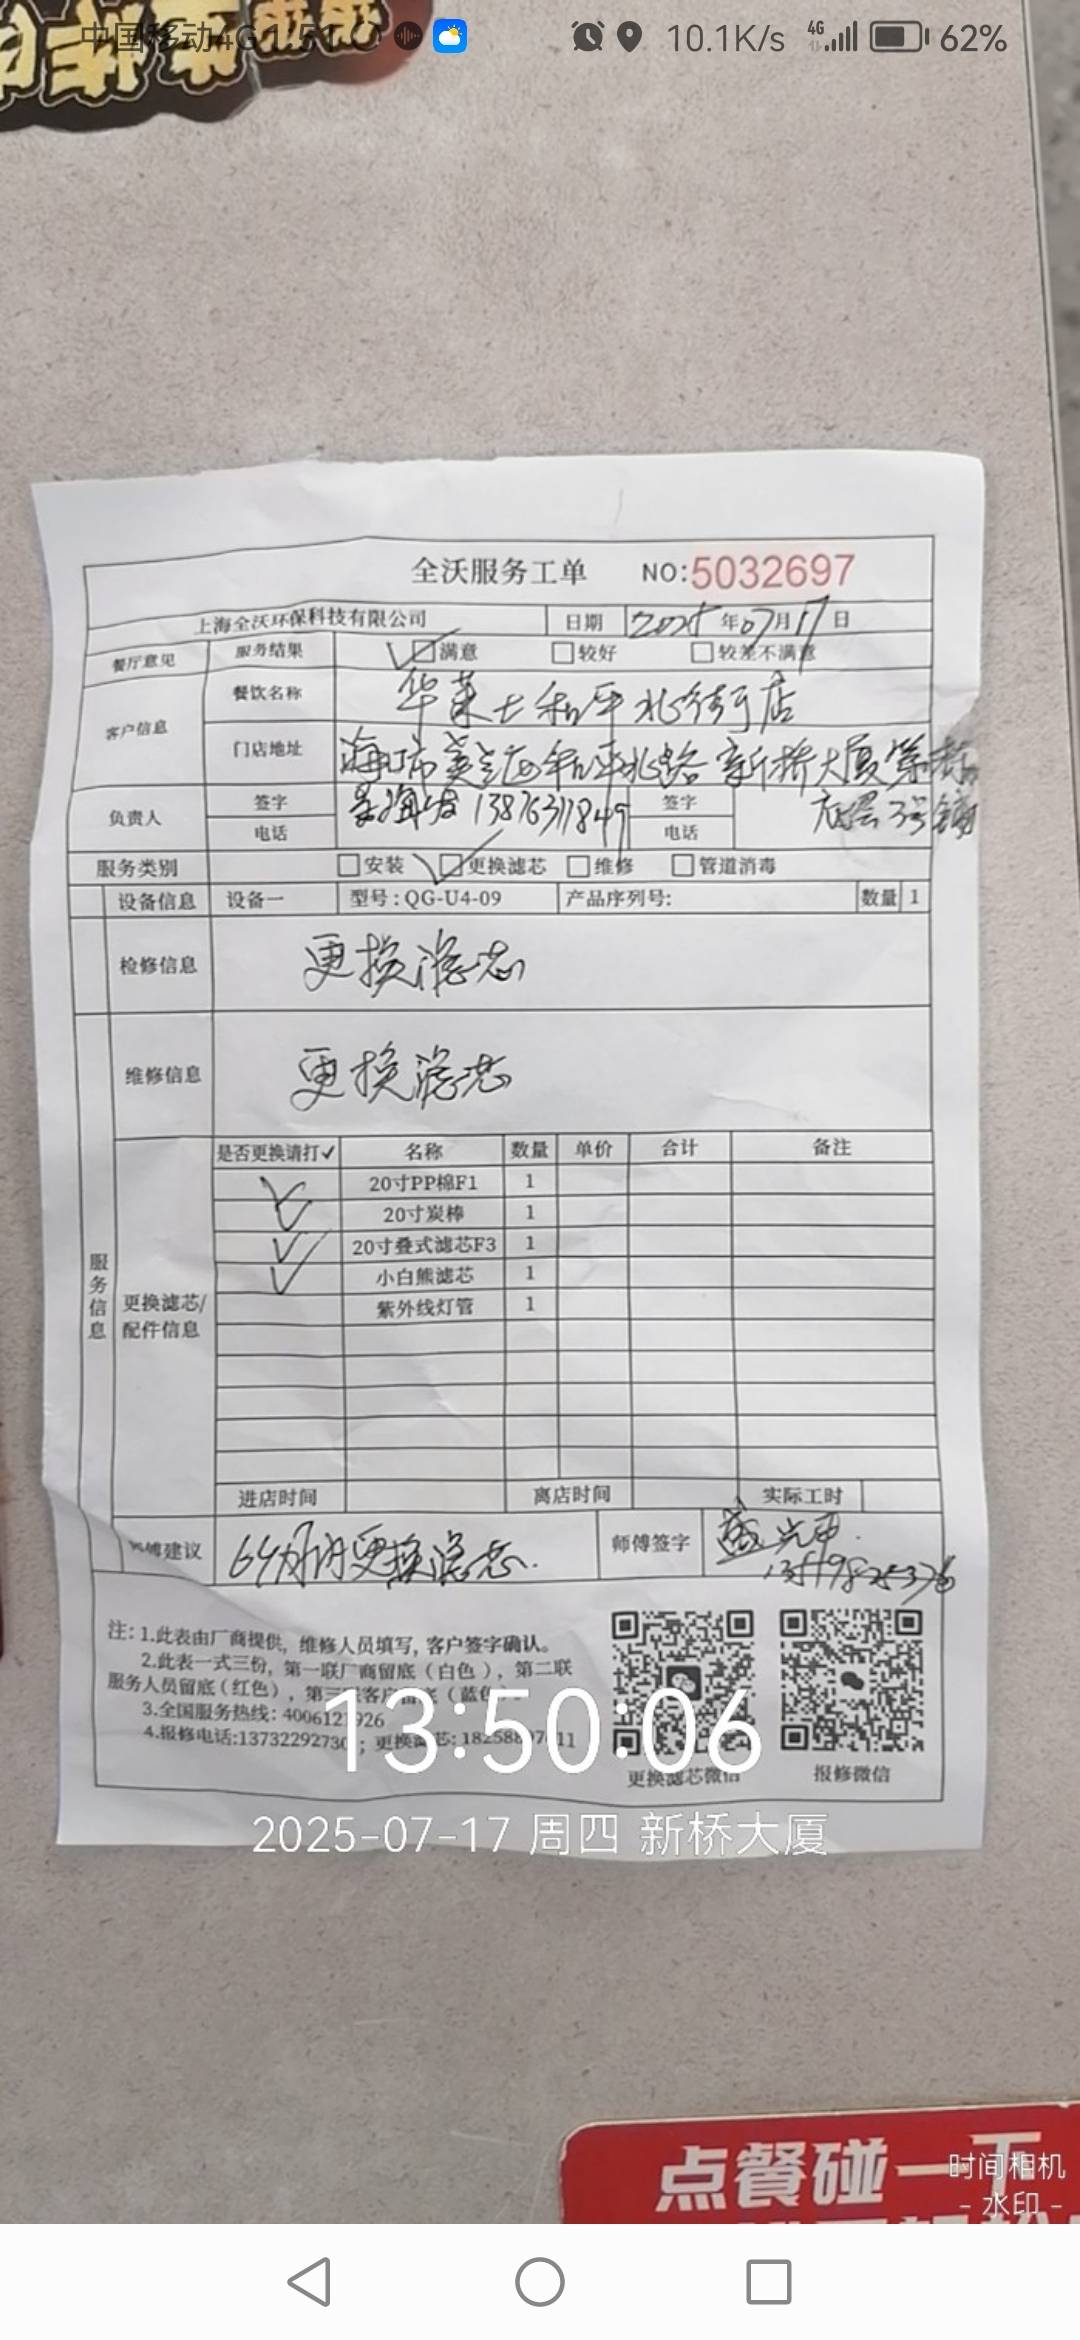 10.1K/s 4G 62%
全沃服务工单 NO:5032697
上海全沃环保科技有限公司 日期 2025年07月17日
餐厅意见 服务结果 满意 较好 较差不满意
客户信息 餐饮名称 华莱士和平北街店
门店地址 海口市美兰区和平北路新桥大厦
底层3号铺
负责人 签字 13876311849 签字
电话 电话
服务类别 安装 更换滤芯 维修 管道消毒
设备信息 设备一 型号:QG-U4-09 产品序列号: 数量 1
检修信息 更换滤芯
服务信息
维修信息 更换滤芯
更换滤芯/配件信息
是否更换请打✓ 名称 数量 单价 合计 备注
✓ 20寸PP棉F1 1
✓ 20寸炭棒 1
✓ 20寸叠式滤芯F3 1
✓ 小白熊滤芯 1
紫外线灯管 1
进店时间 离店时间 实际工时
师傅建议 6个月内更换滤芯. 师傅签字
注:1.此表由厂商提供,维修人员填写,客户签字确认。
2.此表一式三份,第一联厂商留底(白色),第二联
服务人员留底(红色),第三联客户留底(蓝色
3.全国服务热线:
4.报修电话: ;更换滤芯:
更换滤芯微信 报修微信
13:50:06
2025-07-17 周四 新桥大厦
点餐碰一下
时间相机
- 水印 -